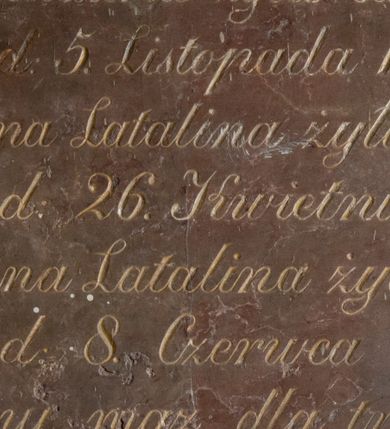 d: 5. Listopada 1
na Latalina żyła
d: 26. Kwietni
na Latalina ży
d: 8. Czerwca
mąż dla